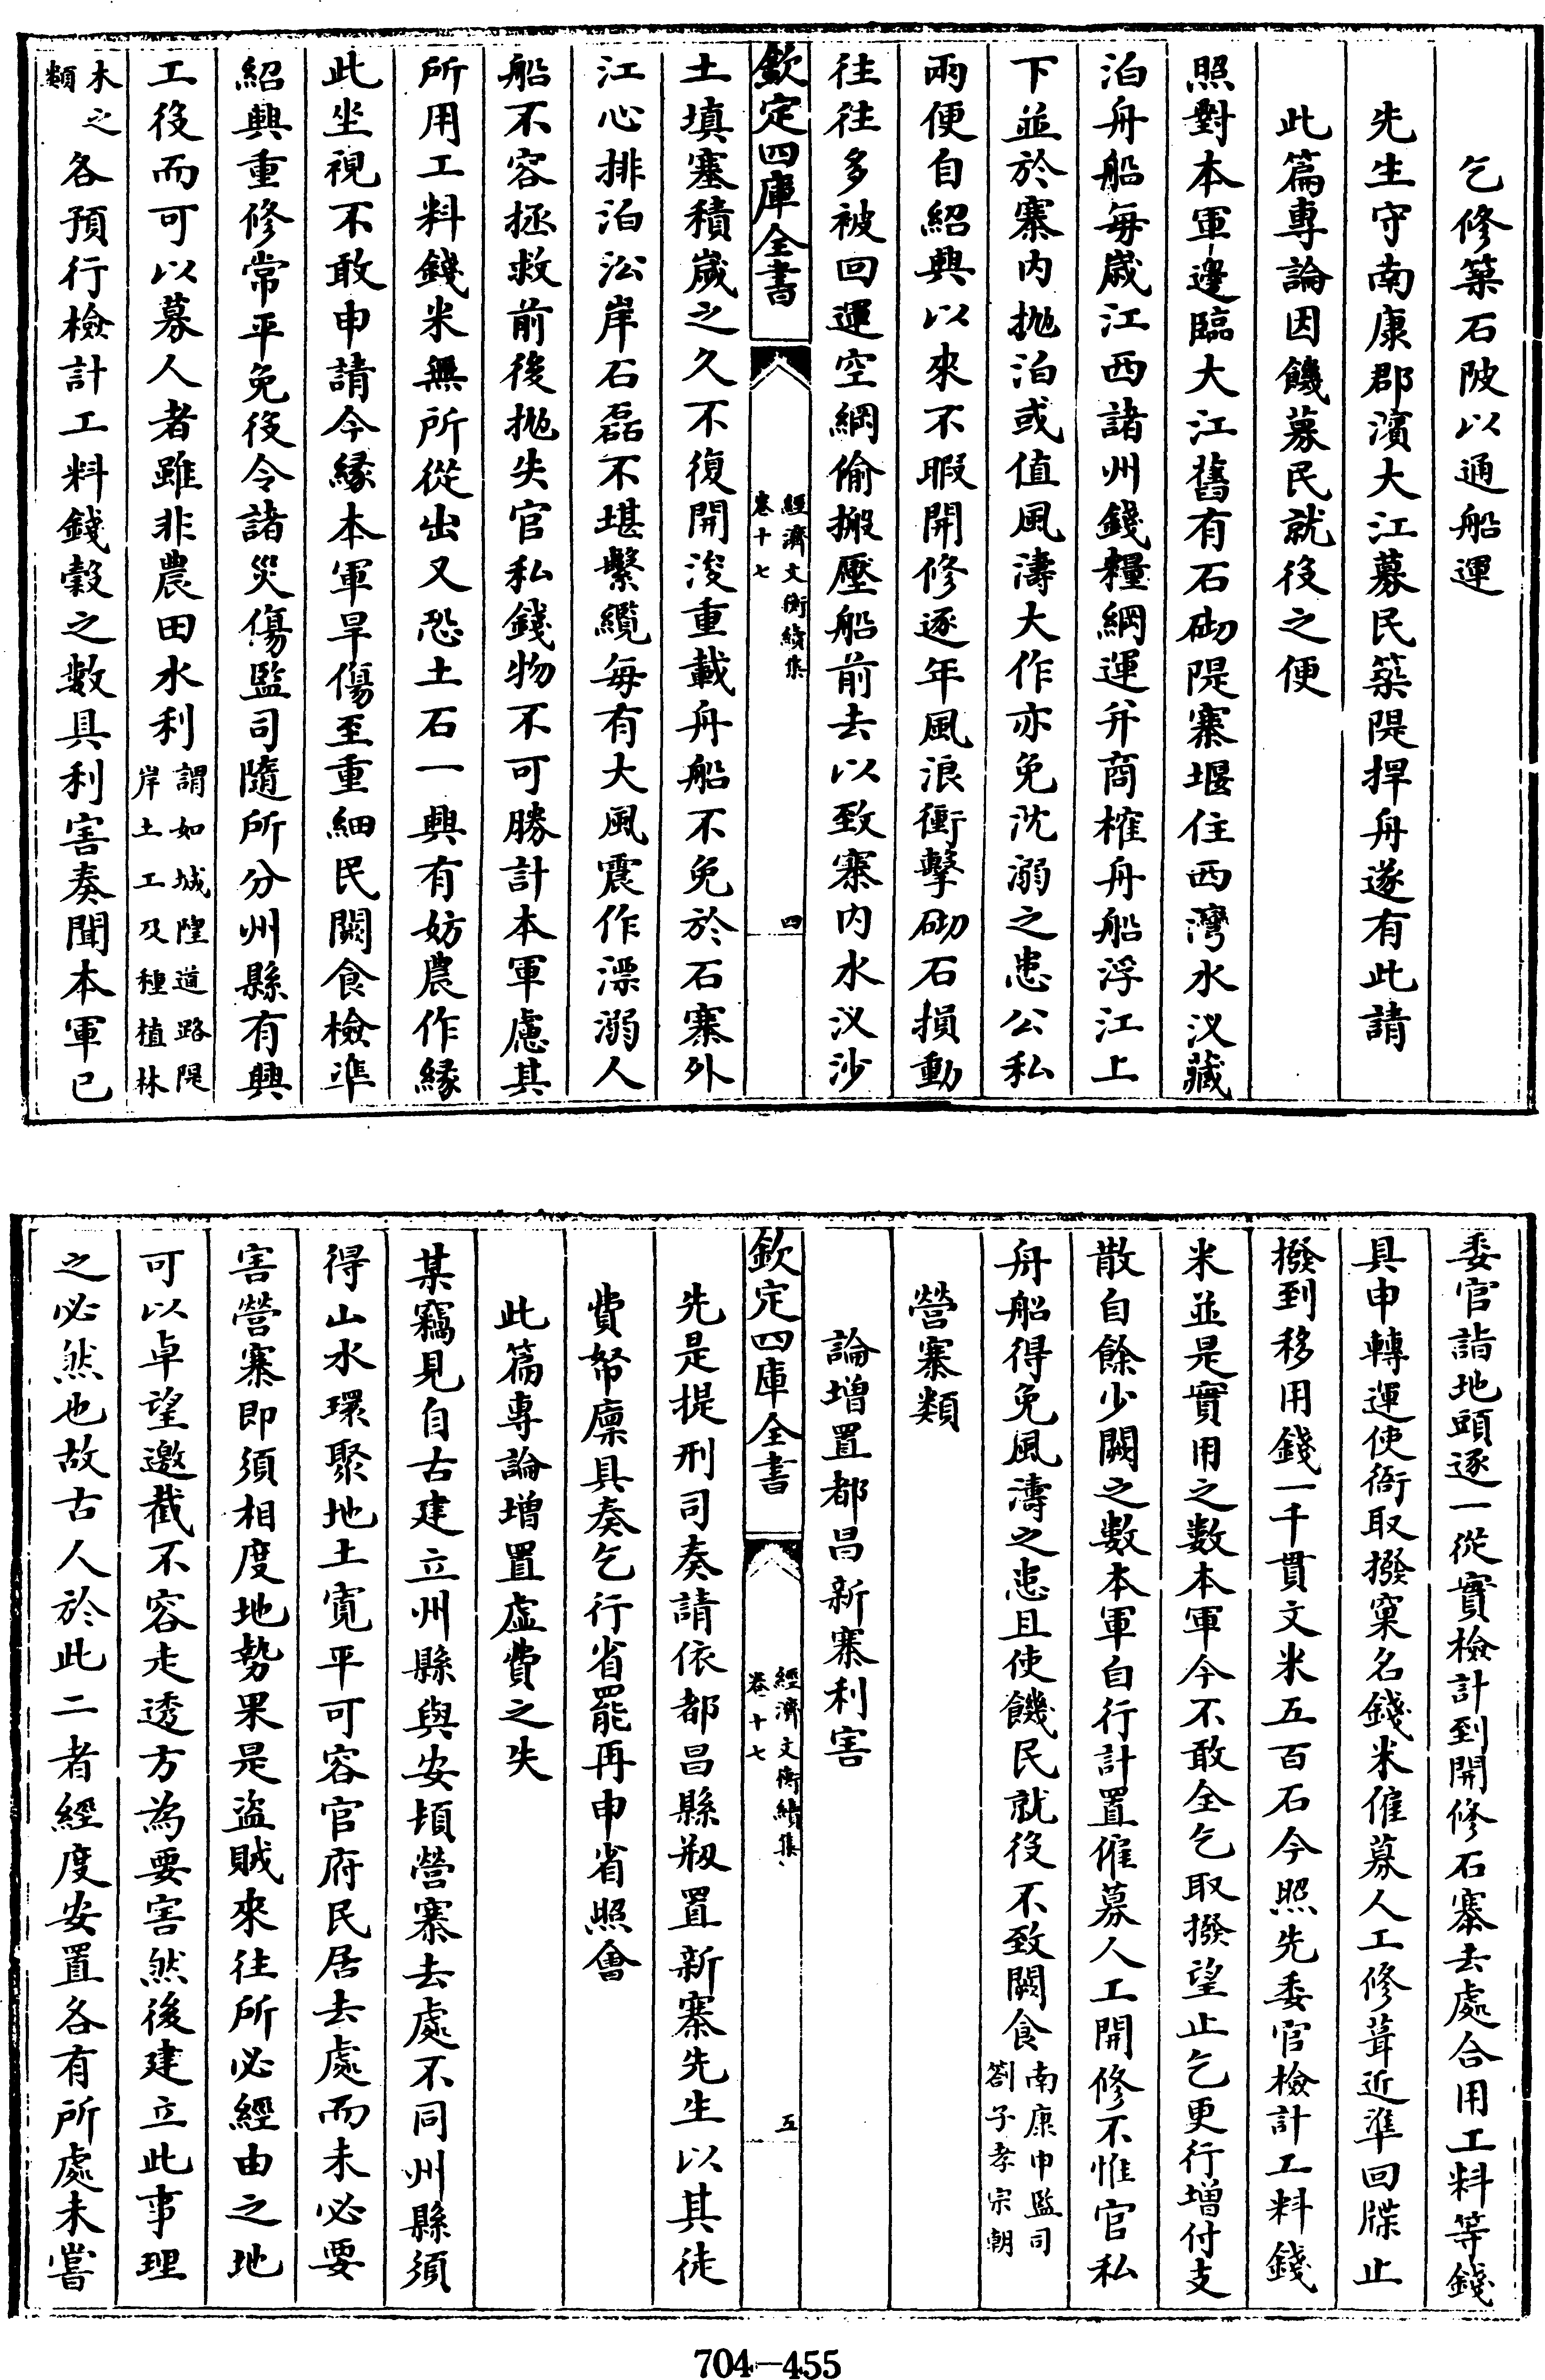 乞修築石陂以通船運
先生守南康郡濱大江募民築隄捍舟遂有此請
此篇專論因饑募民就役之便
照對本軍邊臨大江舊有石砌隄寨堰住西灣水汊藏
泊舟船每歲江西諸州錢糧綱運并商榷舟船浮江上
下並於寨內抛泊或值風濤大作亦免沈溺之患公私
兩便自紹興以來不暇開修逐年風浪衝擊砌石損動
往往多被回運空綱偷搬壓船前去以致寨内水汊沙
欽定四庫全書
經濟文衡續集
卷十七
四
土填塞積歲之久不復開浚重載舟船不免於石寨外
江心排泊㳂岸石磊不堪繫纜每有大風震作漂溺人
船不容拯救前後抛失官私錢物不可勝計本軍慮其
所用工料錢米無所從出又恐土石一興有妨農作緣
此坐視不敢申請今縁本軍旱傷至重細民闕食檢準
紹興重修常平免役令諸災傷監司隨所分州縣有興
工役而可以募人者雖非農田水利謂如城隍道路隄
岸土工及種植林
木之
類各預行檢計工料錢穀之數具利害奏聞本軍已
委官詣地頭逐一從實檢計到開修石寨去處合用工料等錢
具申轉運使衙取撥窠名錢米僱募人工修葺近準回牒止
撥到移用錢一千貫文米五百石今照先委官檢計工料錢
米並是實用之數本軍今不敢全乞取撥望止乞更行增付支
散自餘少闕之數本軍自行計置僱募人工開修不惟官私
舟船得免風濤之患且使饑民就役不致闕食南康申監司
劄子孝宗朝
營寨類
論增置都昌新寨利害
欽定四庫全書
經濟文衡續集
卷十七
五
先是提刑司奏請依都昌縣剏置新寨先生以其徒
費帑廩具奏乞行省罷再申省照會
此篇專論增置虛費之失
某竊見自古建立州縣與安頓營寨去處不同州縣須
得山水環聚地土寬平可容官府民居去處而未必要
害營寨即須相度地勢果是盜賊來往所必經由之地
可以卓望邀截不容走透方為要害然後建立此事理
之必然也故古人於此二者經度安置各有所處未嘗
704—455